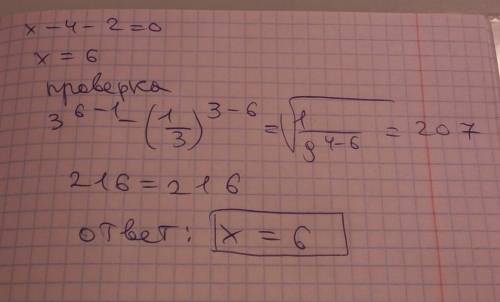 x - 4 - 2 = 0
x = 6
проверка
3^{6-1} - (1/3)^{3-6} = √(1/9^{4-6}) = 207
216 = 216
ответ: x = 6